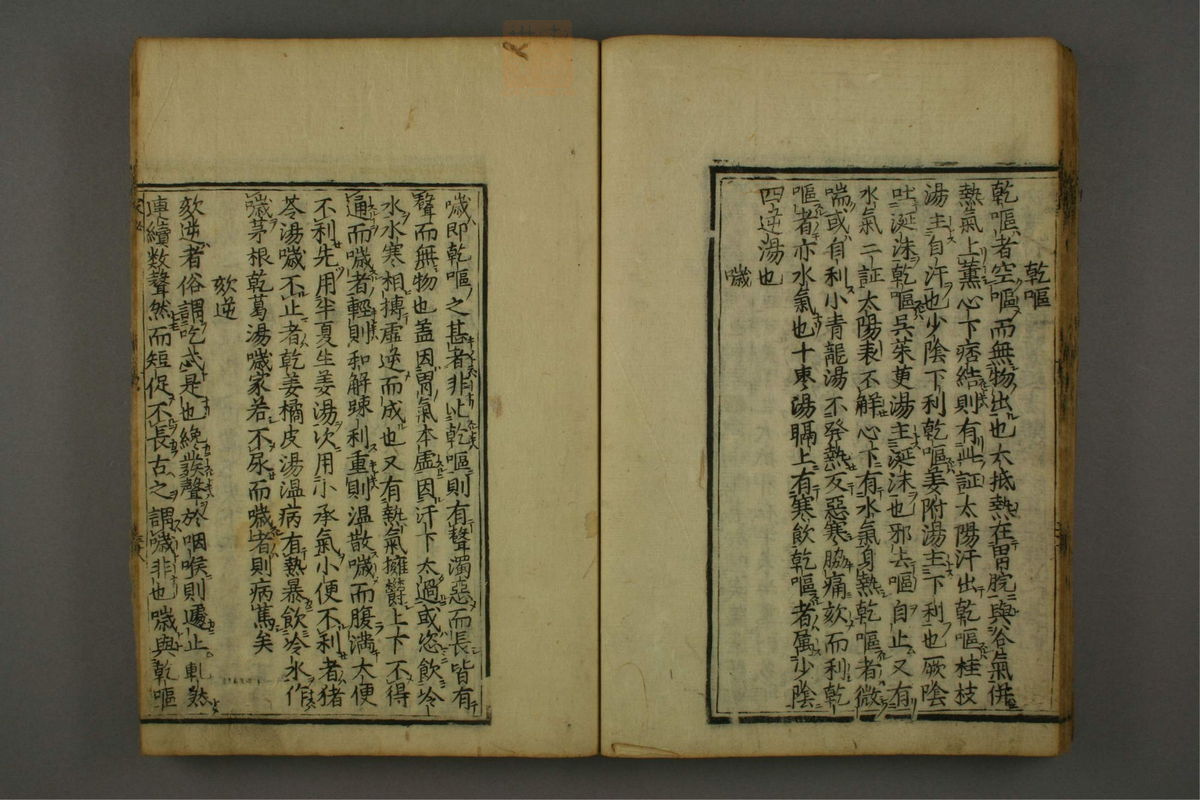 乾嘔
乾嘔者空嘔而無物出也大抵熱在胃脘與谷氣併
熱氣上薫心下痞結則有此証太陽汗出乾嘔桂枝
湯主自汗也少陰下利乾嘔姜附湯主下利也厥陰
吐涎沫乾嘔呉茱萸湯主涎沫也邪去嘔自止又有
水氣二証太陽表不解心下有水氣身熱乾嘔者微
喘或自利小青龍湯不発熱反惡寒脇痛欬而利乾
嘔者亦水氣也十棗湯膈上有寒飲乾嘔者属少陰
四逆湯也
噦
噦即乾嘔之甚者非比乾嘔則有聲濁惡而長皆有
聲而無物也蓋因胃氣本虚因汗下太過或恣飲冷
水水寒相搏虚逆而成也又有熱氣擁欝上下不得
通而噦者輕則和解踈利重則温散噦而腹満大便
不利先用半夏生姜湯次用小承氣小便不利者猪
苓湯噦不止者乾姜橘皮湯温病有熱暴飲冷水作
噦茅根乾葛湯噦家若不尿而噦者則病篤矣
欬逆
欬逆者俗謂吃忒是也纔發聲於咽喉則遽止軋然
連續数聲然而短促不長古之謂噦非也噦與乾嘔